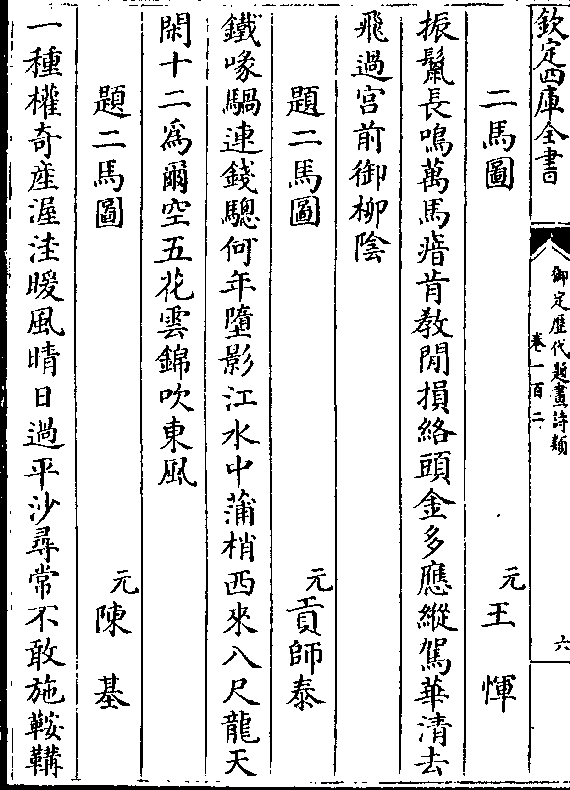 欽定四庫全書
御定歷代題畫詩類
卷一百二
六
二馬圖
元王惲
振鬣長鳴萬馬瘖肯教閒損絡頭金多應縱駕華清去
飛過宫前御柳陰
題二馬圖
元貢師泰
鐵喙騧連錢驄何年墮影江水中蒲梢西來八尺龍天
閑十二爲爾空五花雲錦吹東風
題二馬圖
元陳基
一種權奇産渥洼暖風晴日過平沙尋常不敢施鞍韝